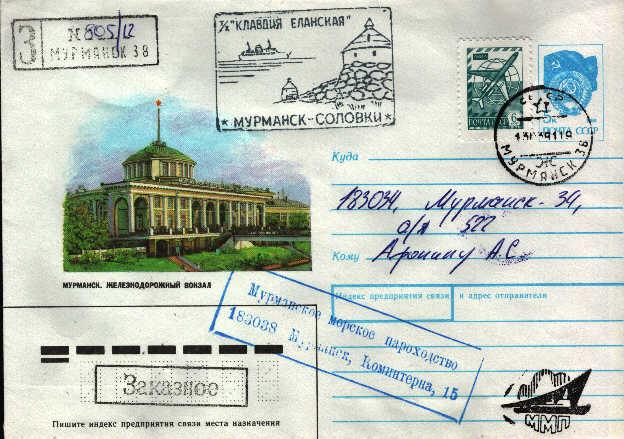 З
N 805/12
МУРМАНСК 38
Т/Х "КЛАВДИЯ ЕЛАНСКАЯ"
★ МУРМАНСК-СОЛОВКИ ★
ПОЧТА СССР
МУРМАНСК 38
Куда
183034, Мурманск-34,
а/я 522
Кому
Аронину А.С
МУРМАНСК. ЖЕЛЕЗНОДОРОЖНЫЙ ВОКЗАЛ
Индекс предприятия связи и адрес отправителя
Мурманское морское пароходство
183038 Мурманск, Коминтерна, 15
Заказное
Пишите индекс предприятия связи места назначения
ММП